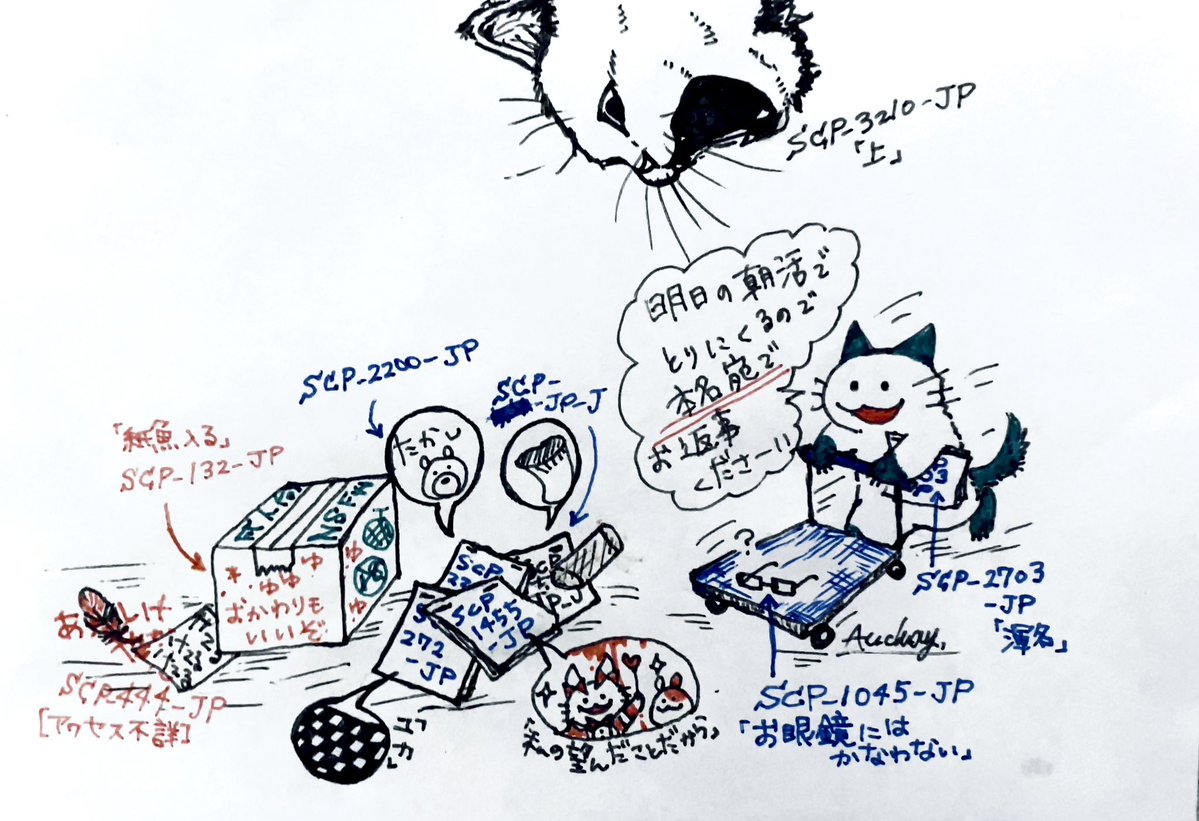 SCP-3210-JP
「上」
明日の朝活で
とりにくるので
本名宛で
お返事
くださーい
SCP-2200-JP
たかし
SCP-
-JP-J
「紙魚入る」
SCP-132-JP
NSFW
ゆ
ゆゆゆ
ゆ
おかわりも
いいぞ
ゆ
ゆ
SCP-444-JP
[アクセス不詳]
SCP
1455
-JP
272
-JP
「私の望んだことだから」
?
SCP-1045-JP
「お眼鏡には
かなわない」
SCP-2703
-JP
「渾名」